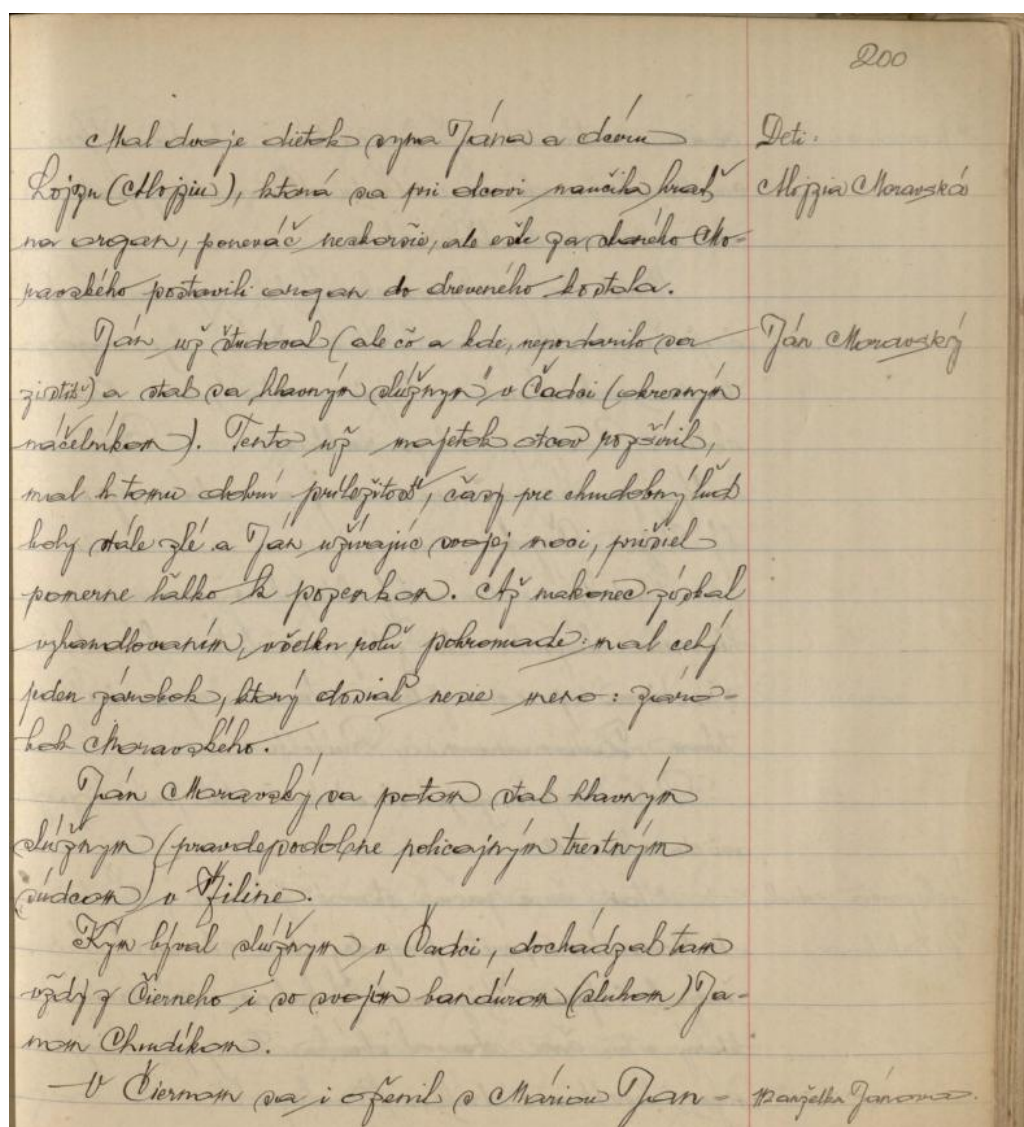 200
Mal dvoje dietok syna Jána a dcéru
Deti.
Lojzu (Alojziu), ktorá sa pri otcovi naučila hrať
Alojzia Moravská
na organ, poneváč neskoršie, ale ešte za starého Mo-
ravského postavili organ do dreveného kostola.
Ján už študoval (ale čo a kde, nepodarilo sa
Ján Moravský
zistiť) a stal sa hlavným slúžnym v Čadci (okresným
náčelníkom). Tento už majetok otcov rozšíril,
mal k tomu dobrú príležitosť, časy pre chudobný ľud
boly stále zlé a Ján užívajúc svojej moci, prišiel
pomerne ľahko k pozemkom. Až nakonec získal
vyhandlovaním, všetku roľu pohromade: mal celý
jeden zárobok, ktorý dosiaľ nesie meno: záro-
bok Moravského.
Ján Moravský sa potom stal hlavným
slúžnym (pravdepodobne policajným trestným
sudcom) v Žiline.
Kým býval slúžnym v Čadci, dochádzal tam
vždy z Čierneho i so svojím bandúrom (sluhom) Ja-
nom Chudíkom.
V Čiernom sa i oženil s Máriou Jan-
Manželka Jánova.